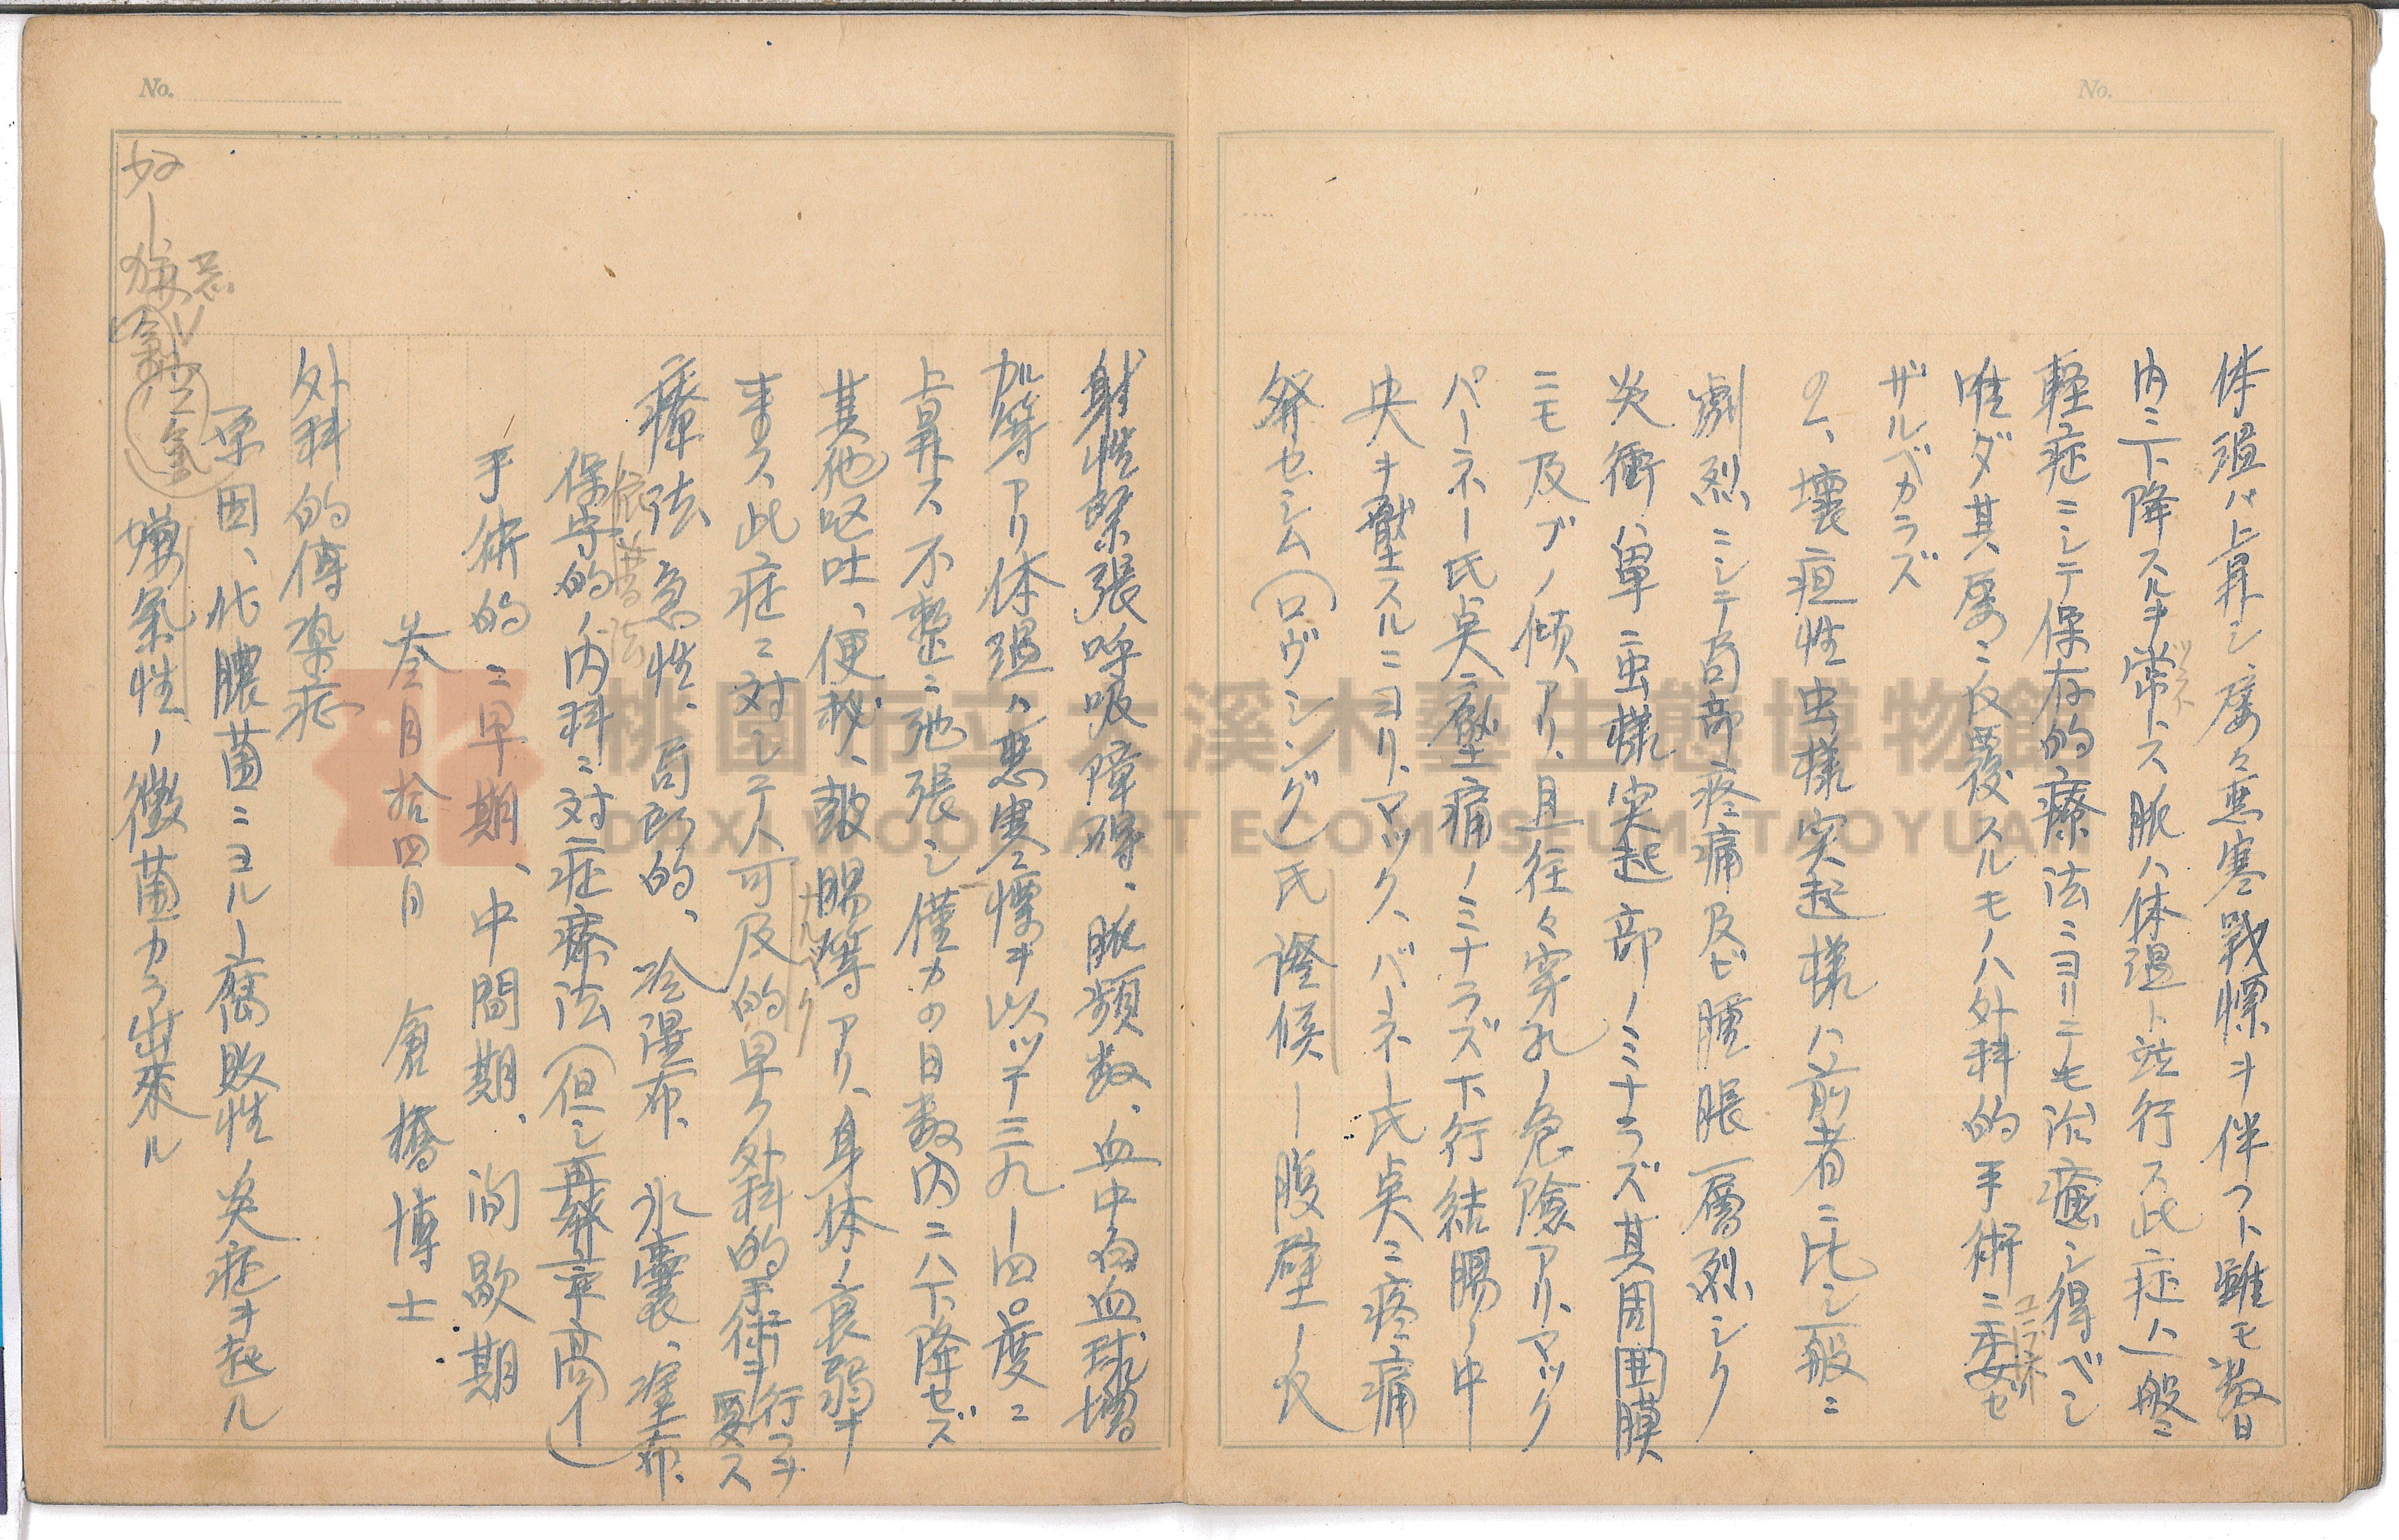 No.
体温ハ上昇シ、屡々悪寒戦慄ヲ伴フト雖モ数日
内ニ下降スルヲ常トス脈ハ体温ト並行ス此症ハ一般ニ
ツネ
軽症ニシテ保存的療法ニヨリテモ治癒シ得ベシ
唯ダ其屡々反覆スルモノハ外科的手術ニ委ゼ
ユラネ
ザルベカラズ
2、壊疽性虫様突起様ハ前者ニ比シ一般ニ
劇烈ニシテ局部疼痛及ビ腫脹一層烈シク
炎衝ハ単ニ虫様突起部ノミナラズ其周囲膜
ニモ及ブノ傾アリ、且往々穿孔ノ危険アリ、マック
パーネー氏点ニ圧痛ノミナラズ下行結腸ノ中
央ヲ壓スルニヨリ、マック、バーネー氏点ニ疼痛
発セシム（ロヴシング）氏證候ー腹壁ー反
No.
射性緊張呼吸障碍、脈頻数、血中白血球増
加等アリ体温ハ悪寒慄ヲ以ッテ三九ー四〇度ニ
上昇ス不整ニ弛張シ僅カの日数内ニハ下降セズ
其他呕吐、便秘、鼓腸等アリ、身体ノ衰弱ヲ
来ス此症ニ対シテハ可及的早ク外科的手術ヲ行フヲ要ス
ナルベク
療法 急性、局所的、冷湿布、氷嚢、塗布、
保守的ノ内科ニ対症療法（但シ再発率高イ）
手術的ニ早期、中間期、间歇期
叁月拾四日 倉橋博士
外科的傳染症
原因、化膿菌ニヨルー腐敗性炎症ヲ起ル
好ー 嫌気性ノ黴菌カラ出来ル
空氣
桃園市立大溪木藝生態博物館
DAXI WOOD ART ECOMUSEUM TAOYUAN